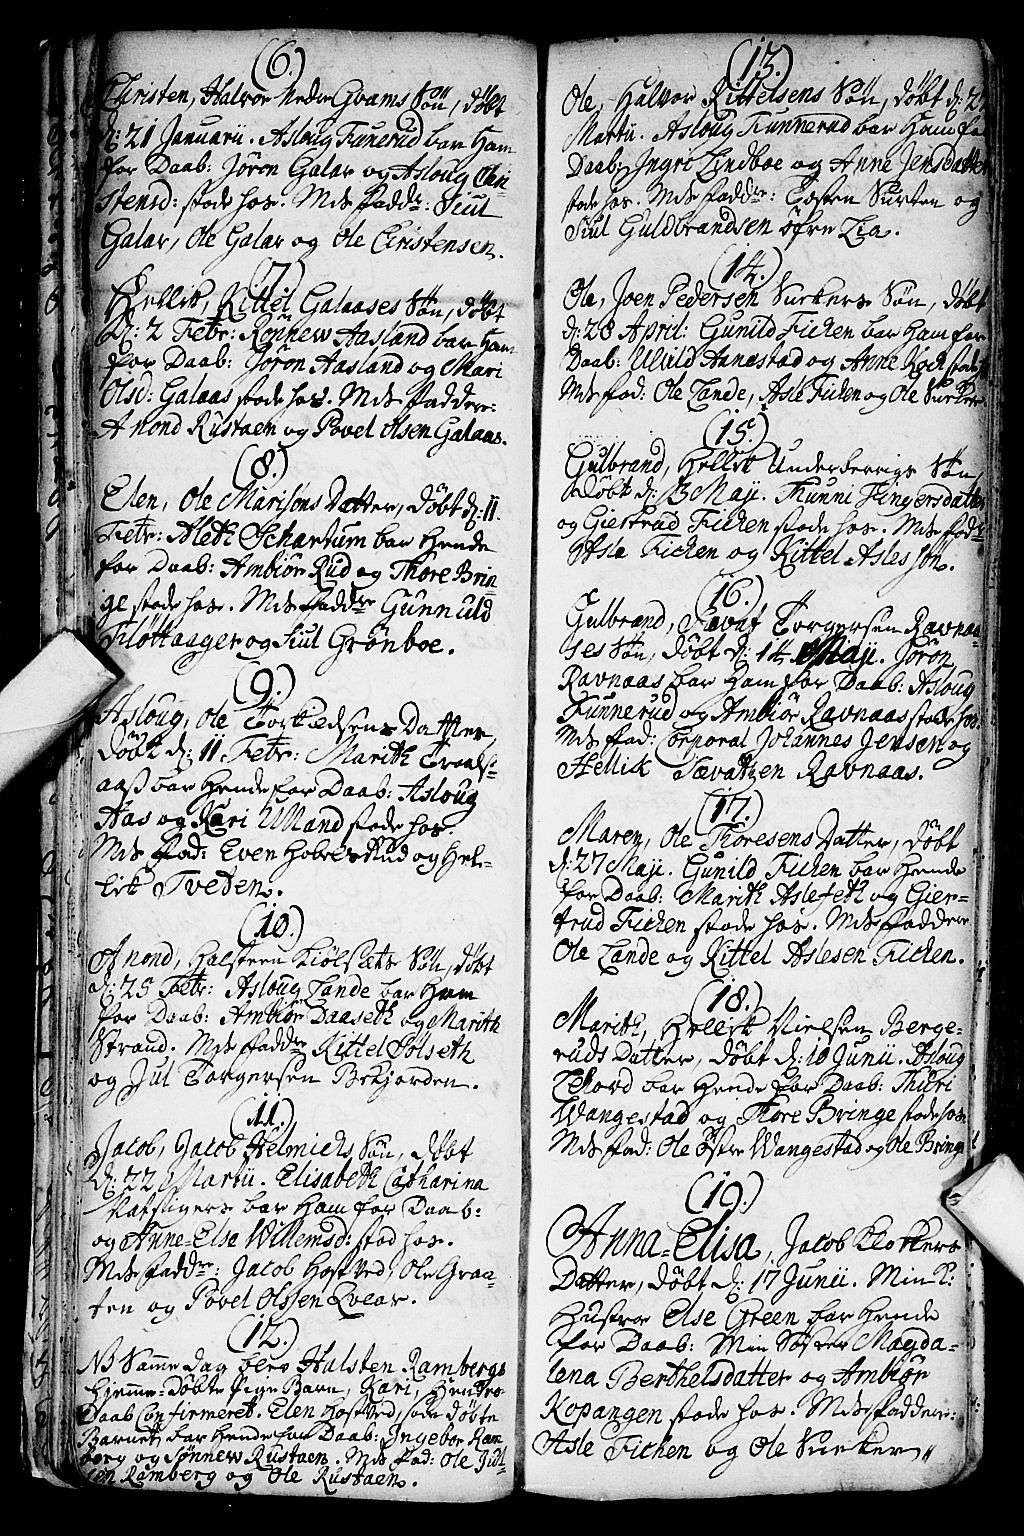 (6.)
Christen, Halvor Nedre Gvams Søn, døbt
d: 21 Januarii. Asloug Funerud bar Ham
for Daab: Jøron Galar og Asloug Chri-
stensd: stode hos. Mds fadd: Siul
Galar, Ole Galar og Ole Christensen.
(7.)
Hellik, Kittel Galaases Søn, døbt
d: 2 Febr: Rønnew Aasland bar Ham
for Daab: Jøron Aasland og Mari
Olsd: Galaas stode hos. Mds faddere:
Anond Rustaen og Povel Olsen Galaas.
(8.)
Elen, Ole Marisøns Datter, døbt d: 11.
Febr: Aleth Schartum bar Hende
for Daab: Ambiør Rud og Thore Brin-
ge stode hos. Mds faddre Gunnuld
Flottaager og Siul Grønboe.
(9.)
Asloug, Ole Torkildsens Datter,
døbt d: 11 Febr: Marith Traals-
aas bar Hende for Daab: Asloug
Aas og Kari Ulland stode hos.
Mds fad: Even Hobersrud og Hel-
lik Tveten.
(10.)
Anond, Halsteen Kiølsets Søn, døbt
d: 25 Febr: Asloug Lande bar Ham
for Daab: Ambiør Daaseth og Marith
Strand. Mds faddre Kittel Solseth
og Jul Torgersen Bekjorden.
(11.)
Jacob, Jacob Helmichs Søn, døbt
d: 22 Martii. Elisabeth Catharina
bar Ham for Daab:
og Anne-Else Willemsd: stod hos.
Mds faddr: Jacob Hostved, Ole Graa-
ten og Povel Olssen Lvear.
(12.)
NB Samme dag blev Halsten Rambergs
hjemme-døbte Pige Barn, Kari, hendes
Daab Confirmeret. Elen Hostved, som døbte
Barnet, bar Hende for Daab: Ingebor Ram
berg og Sønnew Rustaen. Mds fad: Ole Jul-
sen Ramberg og Ole Rustaen.
(13.)
Ole, Halvor Kittelsens Søn, døbt d: 2
Martii. Asloug Funnerud bar Ham for
Daab: Ingri Lindboe og Anne Jensdatter
stode hos. Mds faddre: Tosten Surten og
Siul Guldbrandsen øfre Lia.
(14.)
Ole, Joen Pedersen Surkers Søn, døbt
d: 28 April: Gunild Fichen bar Ham for
Daab: Uhild Annestad og Anne Kock stode
Mds fad: Ole Lande, Asle Fichen og Ole Surker
(15.)
Gulbrand, Hellik Underberrigs Søn,
døbt d: 13 Maji. Thunni Fingersdatter
og Giertrud Fichen stode hos. Mds fadr
Asle Fichen og Kittel Asles søn.
(16.)
Gulbrand, Torgersen Ravnaa-
ses Søn, døbt d: 14 Maji. Jøron
Ravnaas bar Ham for Daab: Asloug
Funnerud og Ambiør Ravnaas stode hos.
Mds fad: Corporal Johannes Jensen og
Hellik Tævatzen Ravnaas.
(17.)
Maren, Ole Thoresens Datter, døbt
d: 27 Maji. Gunild Fichen bar Hende
for Daab: Marith Aslefeth og Gier-
trud Fichen stode hos. Mds faddere
Ole Lande og Kittel Aslesen Fichen.
(18.)
Marith, Hellik Nielsen Berge-
ruds Datter, døbt d: 10 Junii. Asloug
bar Hende for Daab: Thuri
Wangestad og Thore Bringe stode hos.
Mds fad: Ole østre Wangestad og Ole Bringe
(19.)
Anna-Elisa, Jacob Klokkers
Datter, døbt d: 17 Junii. Min K:
Hustroe Else Green bar Hende
for Daab: Min Søster Magda-
lena Berthelsdatter og Ambiør
Kopangen stode hos. Mds faddere:
Asle Fichen og Ole Surker